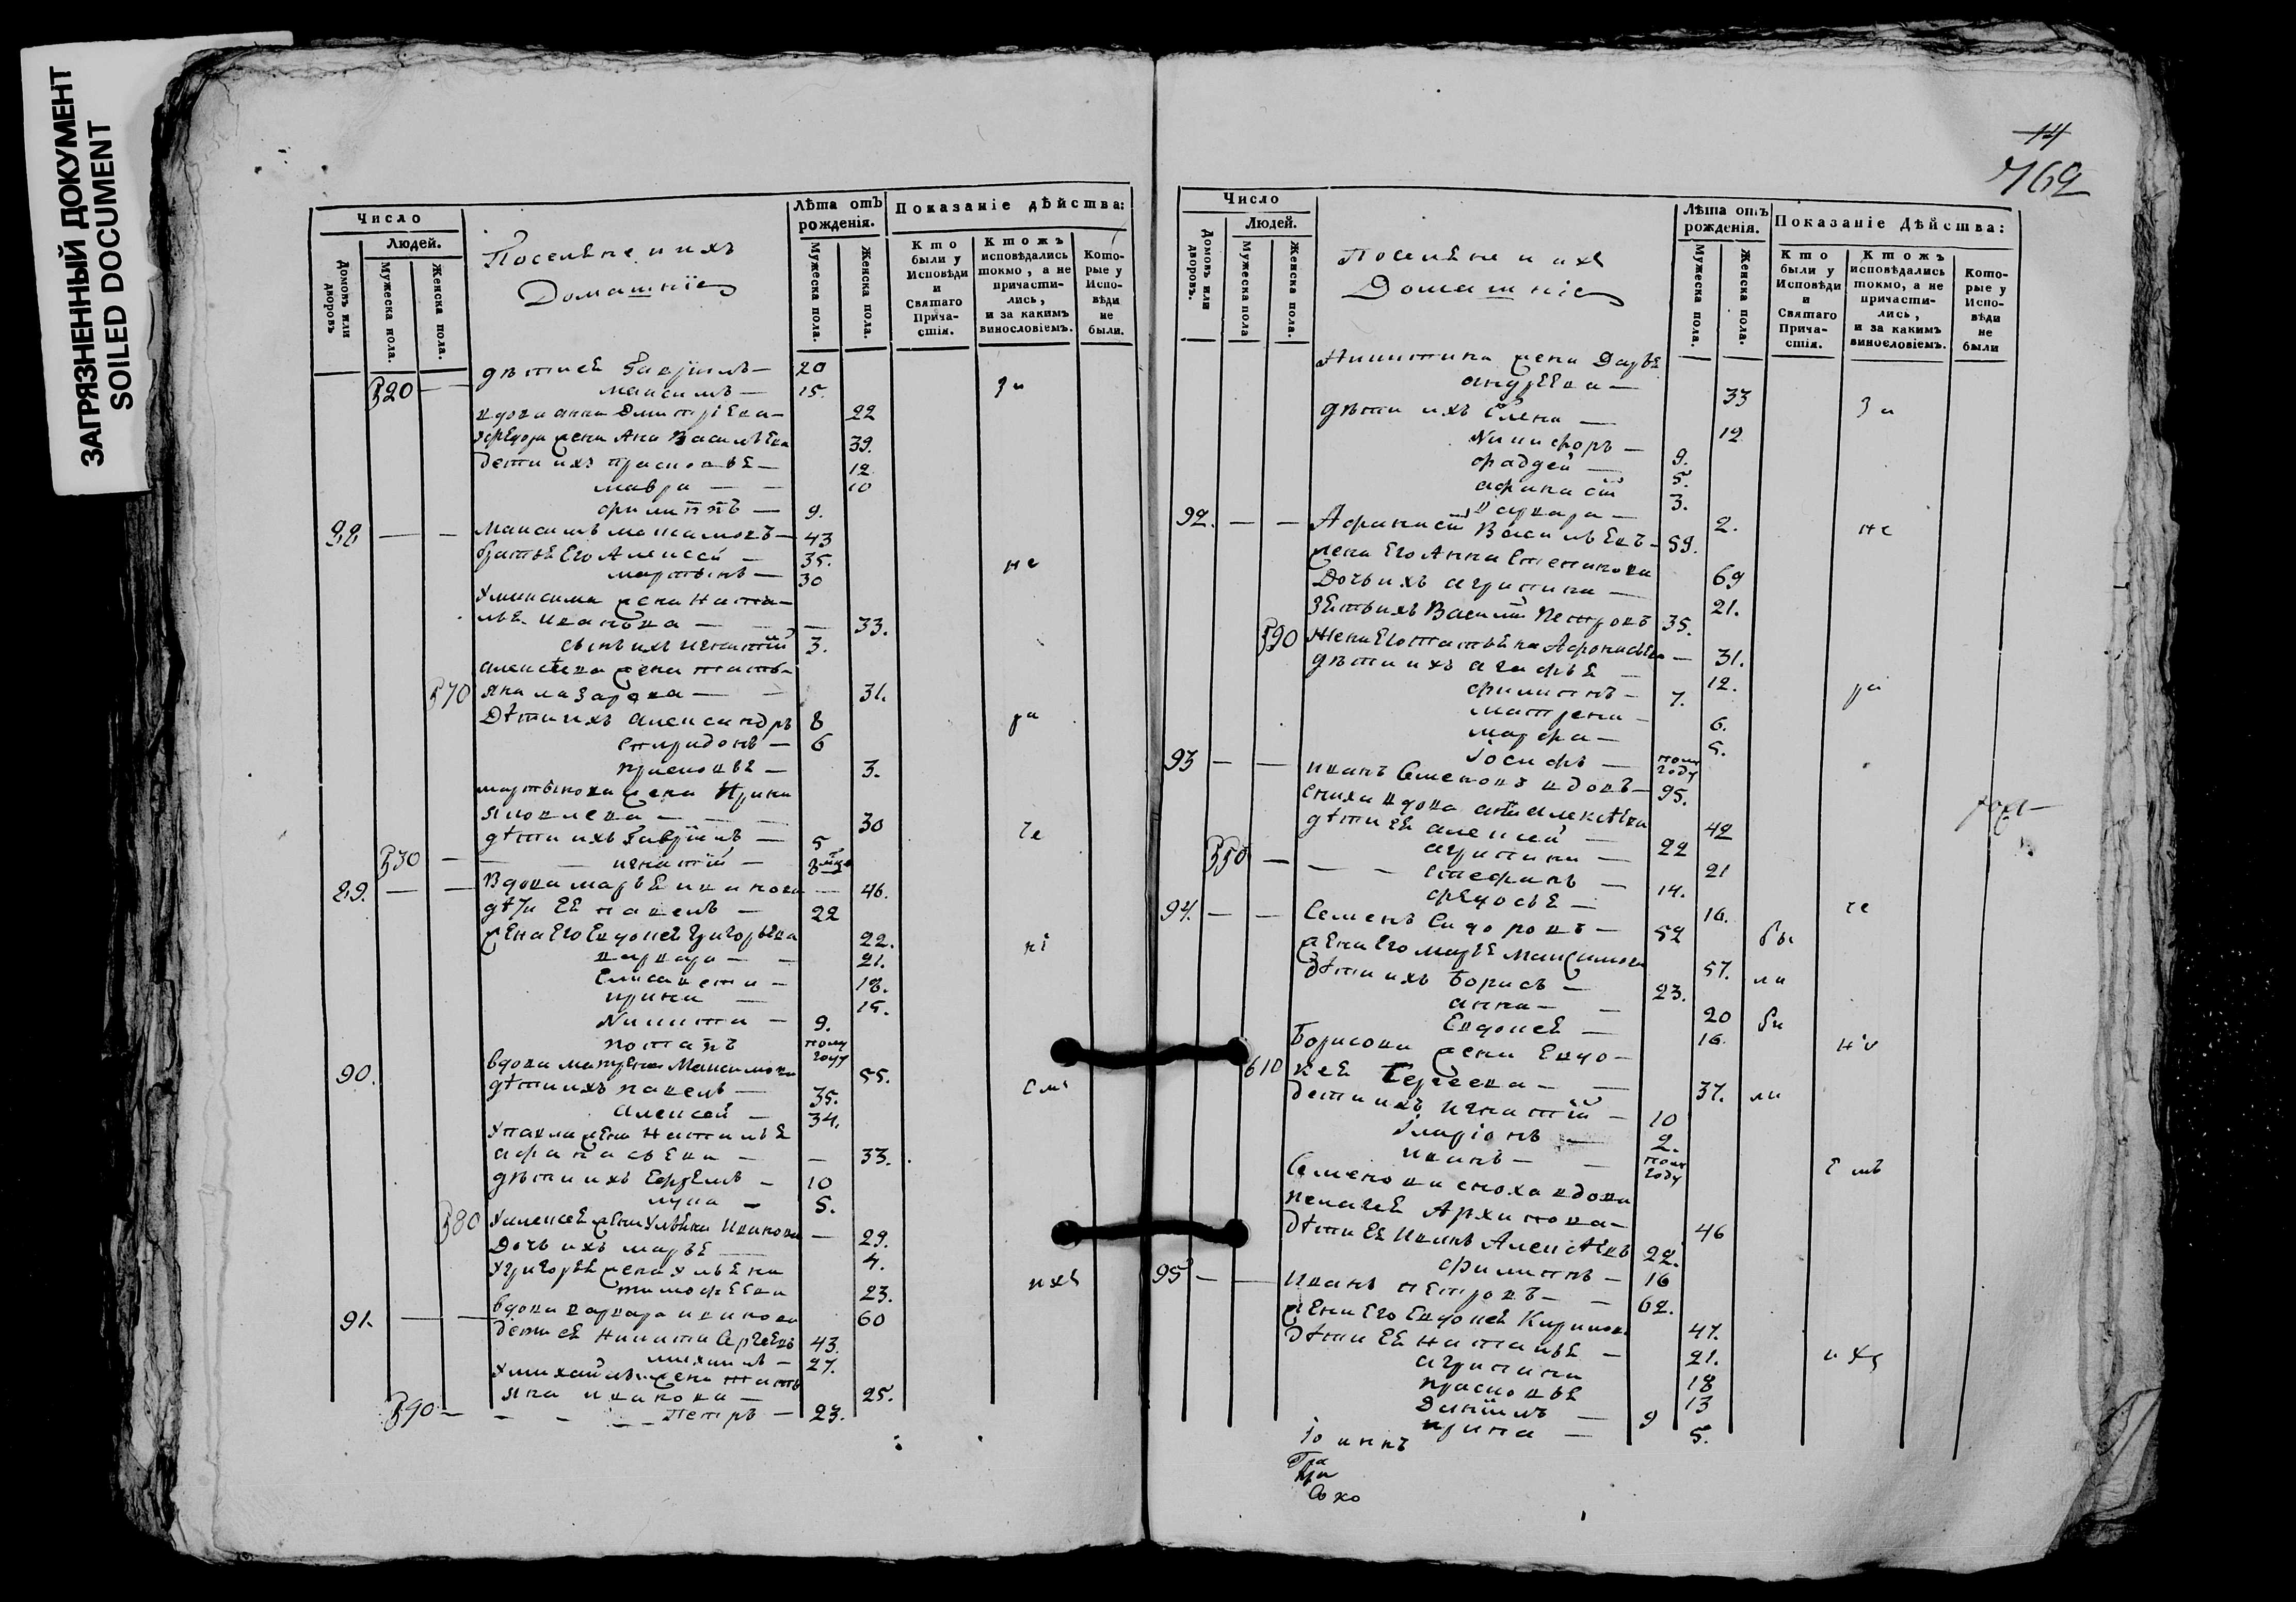 ЗАГРЯЗНЕННЫЙ ДОКУМЕНТ
SOILED DOCUMENT
Число
Людей.
Домовъ или дворовъ
Мужеска пола.
Женска пола.
Поселяне и ихъ
Домашніе
Лѣта отъ рожденія.
Мужеска пола.
Женска пола.
Показаніе дѣйства:
Кто были у Исповѣди и Святаго Прича-стія.
Ктожъ исповѣдались токмо, а не причасти-лись, и за какимъ винословіемъ.
Кото-рые у Испо-вѣди не были.
дѣти еѣ Гавріилъ — 20
520 — — максимъ — 15. за
вдова анна Дмитріева — 22
жена Анна Васильева 39.
дети ихъ прасковья — 12
мавра — — 10
филиппъ — 9.
88 — — максимъ — 43
братья Его Алексей — 35. не
мартынъ — 30
Умаксима жена ната-
лья ивановна — — 33.
сынъ ихъ игнатій 3.
алексѣева жена тать-
570 яна лазарева — — 31.
Дѣти ихъ александръ 8 ра
спиридонъ — 6
прасковья — 3.
мартынова жена Ирина
Яковлева — — — 30
дѣти ихъ Гавріилъ — 5 че
530 — — — игнатій — 8
89. — — Вдова марья иванова — 46.
дѣти ея павелъ — 22
жена Его Евдокея Григорьева 22. ні
варвара — — 21.
Елисавета — 18.
ирина — 15.
Никита — 9.
потапъ полу году
90. вдова Максимова 55.
дѣти ихъ павелъ — 35. емъ
Алексей — 34.
Упавла жена Наталья
афанасьева — — 33.
дѣти ихъ Ефремъ — 10
лука — 5.
580 Уалексея жена Ульяна Иванова — 29.
Дочь ихъ марья — 4.
Угригорья жена ульяна
тимофеева 23. ихъ
91. — — вдова варвара иванова 60
дети еѣ Никита Сергеевъ 43.
михаилъ — 27.
Умихайлы жена тать
яна иванова — 25.
540 — — — — петръ — 23.
14
762
Число
Людей.
Домовъ или дворовъ.
Мужеска пола
Женска пола.
Поселяне и ихъ
Домашніе
Лѣта отъ рожденія.
Мужеска пола.
Женска пола.
Показаніе Дѣйства:
Кто были у Исповѣди и Святаго Прича-стія.
Ктожъ исповѣдались токмо, а не причасти-лись, и за какимъ винословіемъ.
Кото-рые у Испо-вѣди не были
Никитина жена Дарья
андреева — 33 за
дѣти ихъ Елена — 12
Никифоръ — 9.
фадей — 5.
афанасій 3.
варвара — 2.
92. — — Афанасій Васильевъ — 59. не
жена Его Анна Степанова 69
Дочь ихъ агрипина — 21.
зять ихъ Василій Петровъ 35.
590 Жена Его татьяна Афонасьева — 31.
дѣти ихъ агафья — 12.
филиппъ — 7. ра
матрена — 6.
марфа — 5.
Іосифъ — полу году
93 — — иванъ Семеновъ вдовъ — 95.
сноха вдова Алексѣева 42
дѣти еѣ алексей — 22
агрипина — 21
550 — — — стефанъ — 14.
федосья — 16. че
94. — — Семенъ Сидоровъ — 52 бы
жена Его марья Максимова 57. ли
дѣти ихъ Борисъ — 23.
анна — — 20 бы
Евдокея — 16.
Борисова жена Евдо- ні
610 кея Сергеева — — 37. ли
дети ихъ игнатій — 10
Иларіонъ — 2.
иванъ — — полу году
Семенова сноха вдова емъ
пелагея Архипова — 46
дѣти еѣ Иванъ Алексѣевъ 22.
филиппъ — 16
95 — — иванъ петровъ — — 62.
жена Его Евдокея 47.
дѣти еѣ наталья — 21. ихъ
агрипина 18
прасковья 13
Даніилъ — 9
ирина — 5.
Іоаннъ